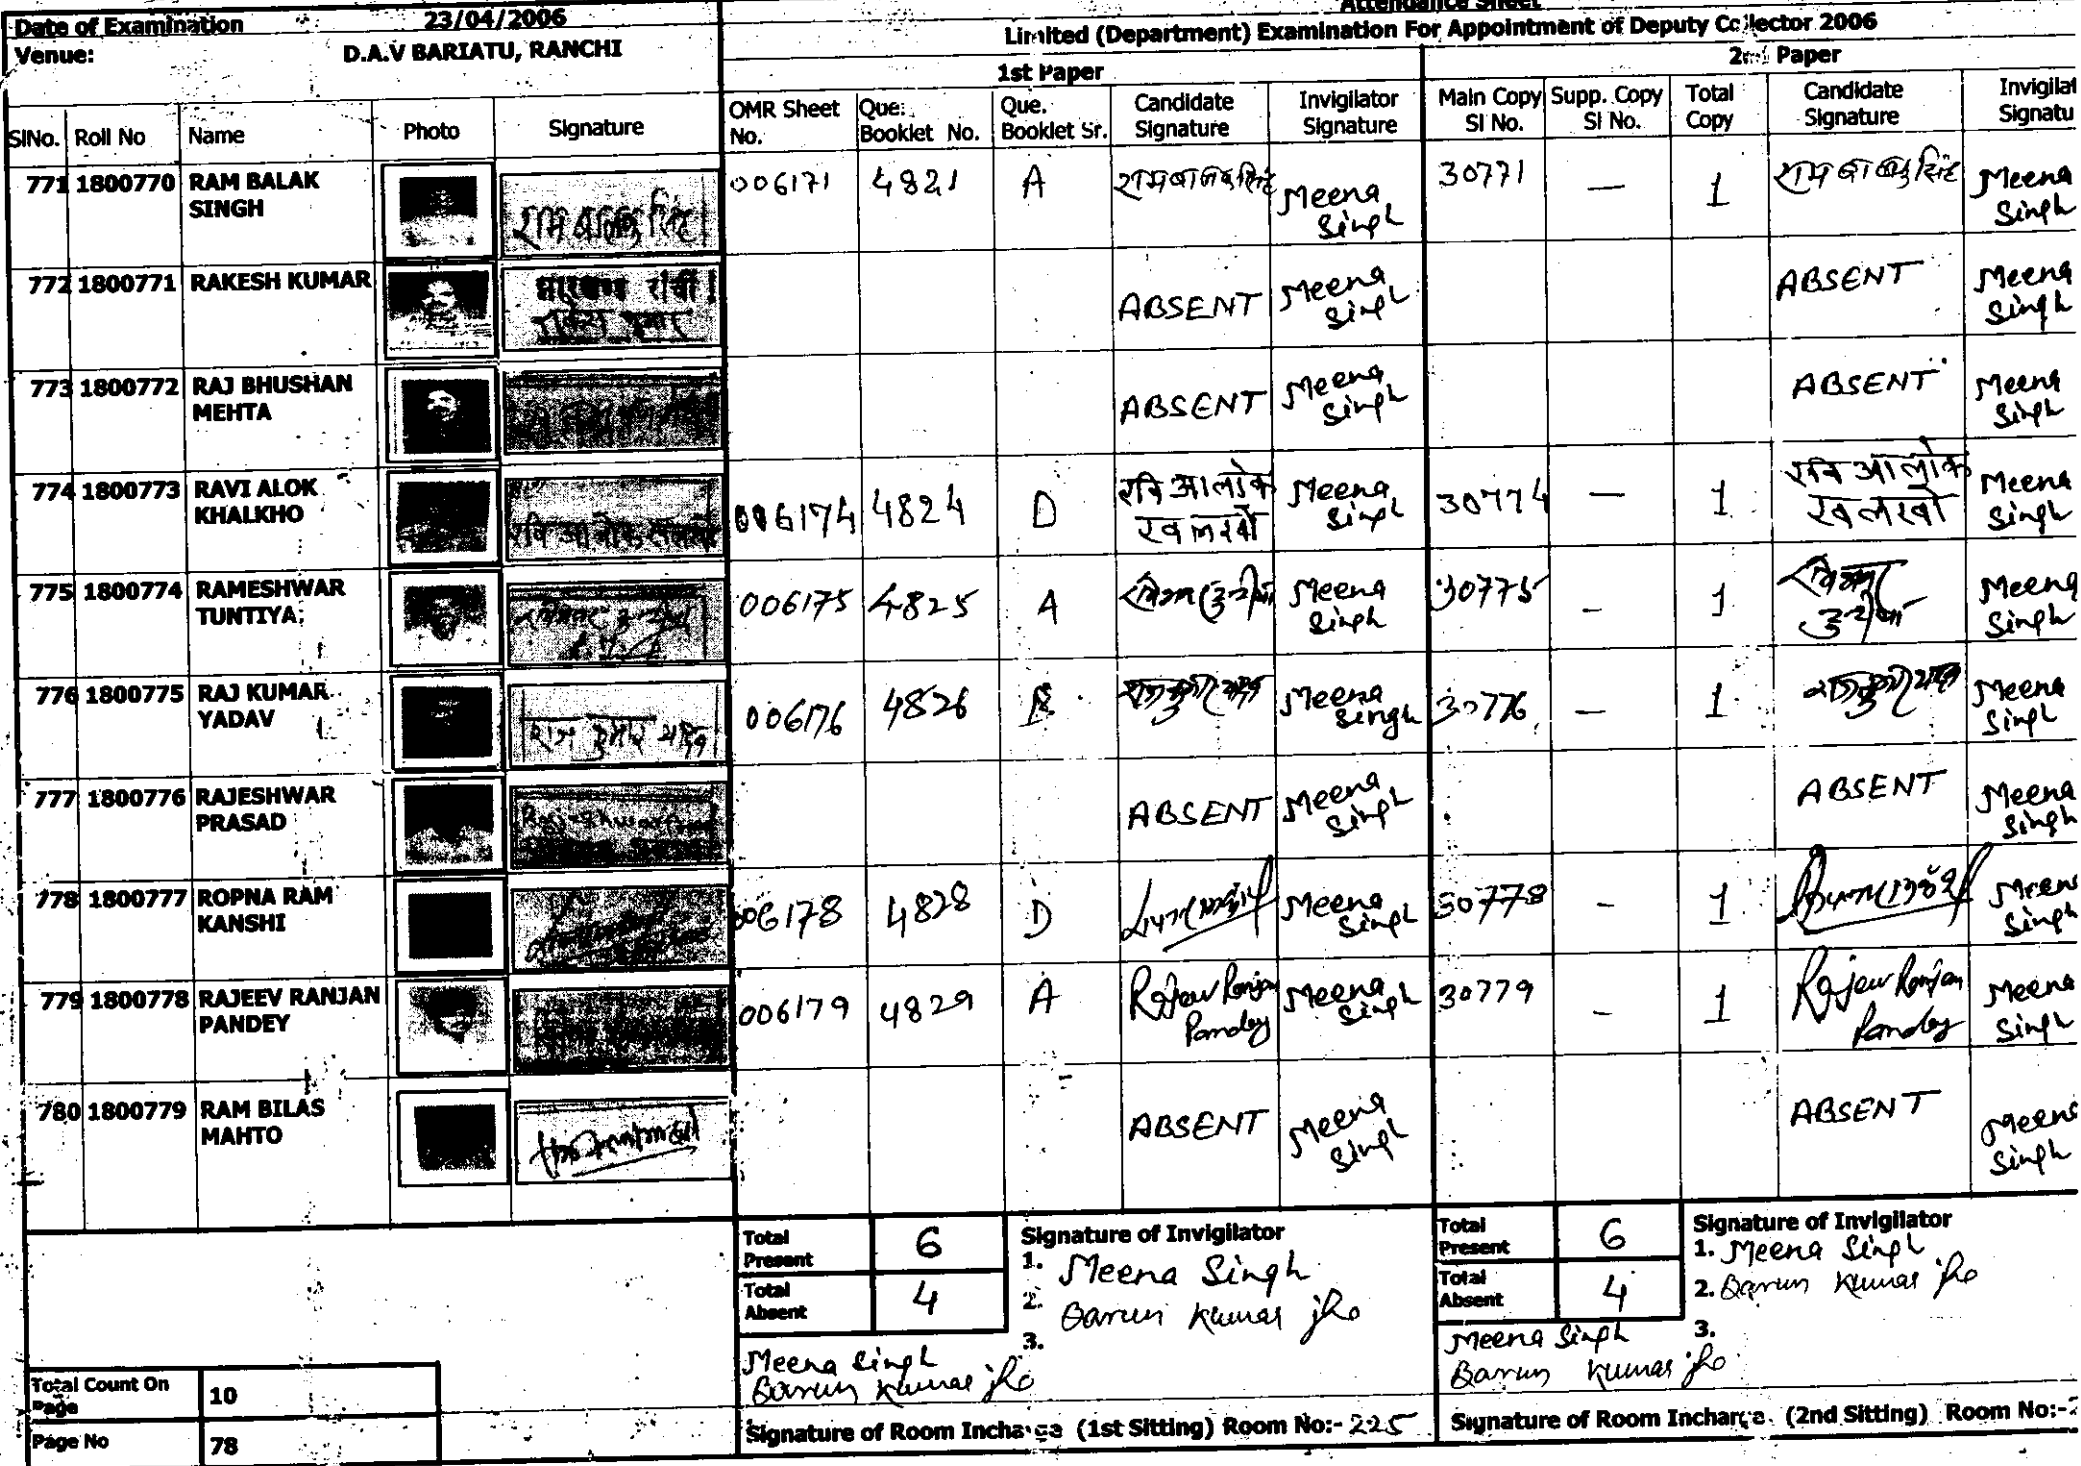 Attendance Sheet
Date of Examination 23/04/2006 Limited (Department) Examination For Appointment of Deputy Collector 2006
Venue: D.A.V BARIATU, RANCHI
1st Paper 2nd Paper
SlNo. Roll No Name Photo Signature OMR Sheet No. Que. Booklet No. Que. Booklet Sr. Candidate Signature Invigilator Signature Main Copy Sl No. Supp. Copy Sl No. Total Copy Candidate Signature Invigilat Signatu
771 1800770 RAM BALAK SINGH राम बालक सिंह 006171 4821 A राम बालक सिंह Meena Singh 30771 — 1 राम बालक सिंह Meena Singh
772 1800771 RAKESH KUMAR झारखण्ड रांची। राकेश कुमार ABSENT Meena Singh ABSENT Meena Singh
773 1800772 RAJ BHUSHAN MEHTA ABSENT Meena Singh ABSENT Meena Singh
774 1800773 RAVI ALOK KHALKHO रवि आलोक खलखो 006174 4824 D रवि आलोक खलखो Meena Singh 30774 — 1 रवि आलोक खलखो Meena Singh
775 1800774 RAMESHWAR TUNTIYA 006175 4825 A Meena Singh 30775 – 1 Meena Singh
776 1800775 RAJ KUMAR YADAV राज कुमार यादव 006176 4826 B राजकुमार यादव Meena Singh 30776 — 1 राजकुमार यादव Meena Singh
777 1800776 RAJESHWAR PRASAD ABSENT Meena Singh ABSENT Meena Singh
778 1800777 ROPNA RAM KANSHI 006178 4828 D Meena Singh 30778 - 1 Meena Singh
779 1800778 RAJEEV RANJAN PANDEY 006179 4829 A Rajeev Ranjan Pandey Meena Singh 30779 – 1 Rajeev Ranjan Pandey Meena Singh
780 1800779 RAM BILAS MAHTO ABSENT Meena Singh ABSENT Meena Singh
Total Present 6 Signature of Invigilator Total Present 6 Signature of Invigilator
1. Meena Singh 1. Meena Singh
Total Absent 4 2. Barun Kumar Jha Total Absent 4 2. Barun Kumar Jha
3. 3.
Meena Singh Meena Singh
Barun Kumar Jha Barun Kumar Jha
Total Count On Page 10
Signature of Room Incharge (1st Sitting) Room No:- 225 Signature of Room Incharge (2nd Sitting) Room No:-
Page No 78